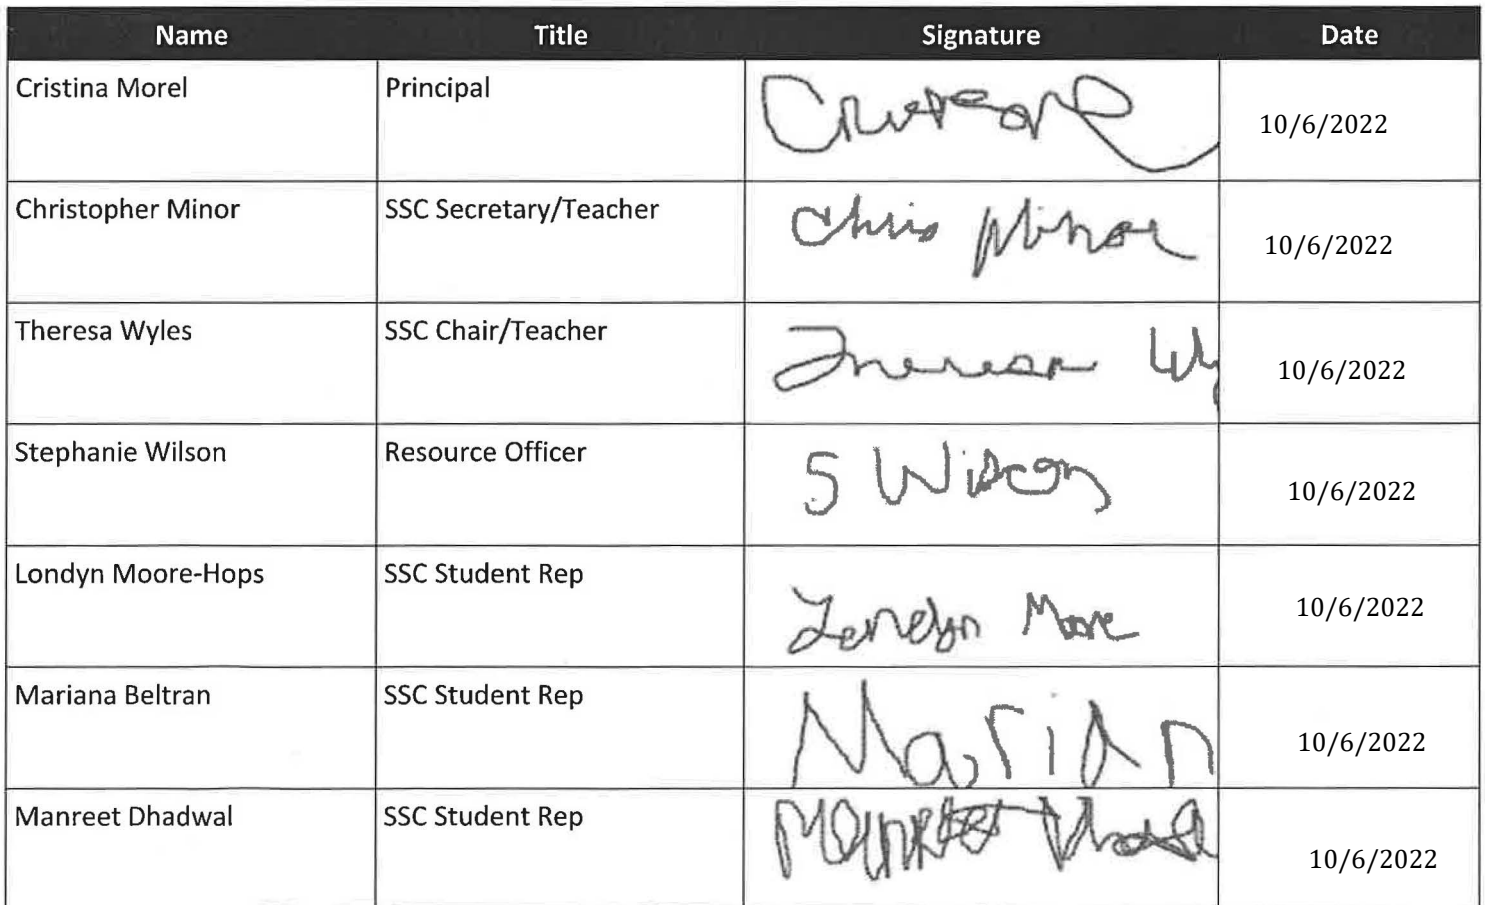 Name Title Signature Date
Cristina Morel Principal 10/6/2022
Christopher Minor SSC Secretary/Teacher Chris Minor 10/6/2022
Theresa Wyles SSC Chair/Teacher Theresa Wy 10/6/2022
Stephanie Wilson Resource Officer S Wilson 10/6/2022
Londyn Moore-Hops SSC Student Rep Londyn Moore 10/6/2022
Mariana Beltran SSC Student Rep Marian 10/6/2022
Manreet Dhadwal SSC Student Rep Manreet 10/6/2022